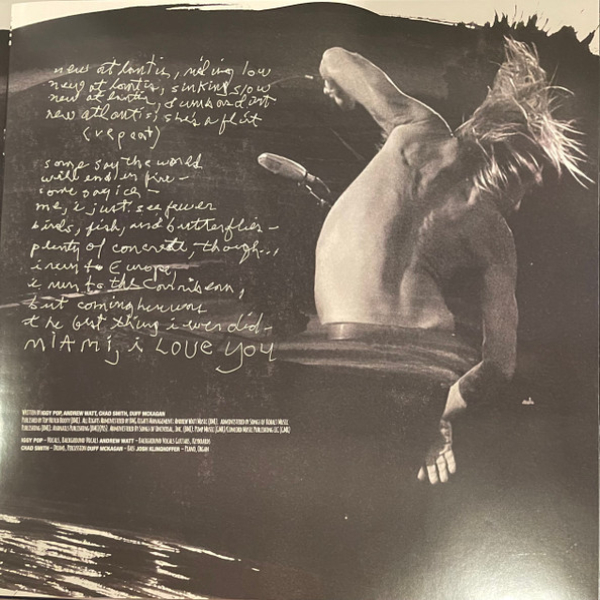 new atlantis, riding low
new atlantis, sinking slow
new atlantis,
new atlantis, she's a flirt
(repeat)
some say the world
will end in fire -
some say ice -
me, i just see fewer
birds, fish, and butterflies -
plenty of concrete, though...
i run to Europe,
i run to the Carribean,
but coming here was
the best thing i ever did -
MIAMI, i LOVE YOU
WRITTEN BY IGGY POP, ANDREW WATT, CHAD SMITH, DUFF MCKAGAN
IGGY POP – VOCALS, BACKGROUND VOCALS ANDREW WATT – BACKGROUND VOCALS GUITARS, KEYBOARDS
CHAD SMITH – DRUMS, PERCUSSION DUFF MCKAGAN – BASS JOSH KLINGHOFFER – PIANO, ORGAN